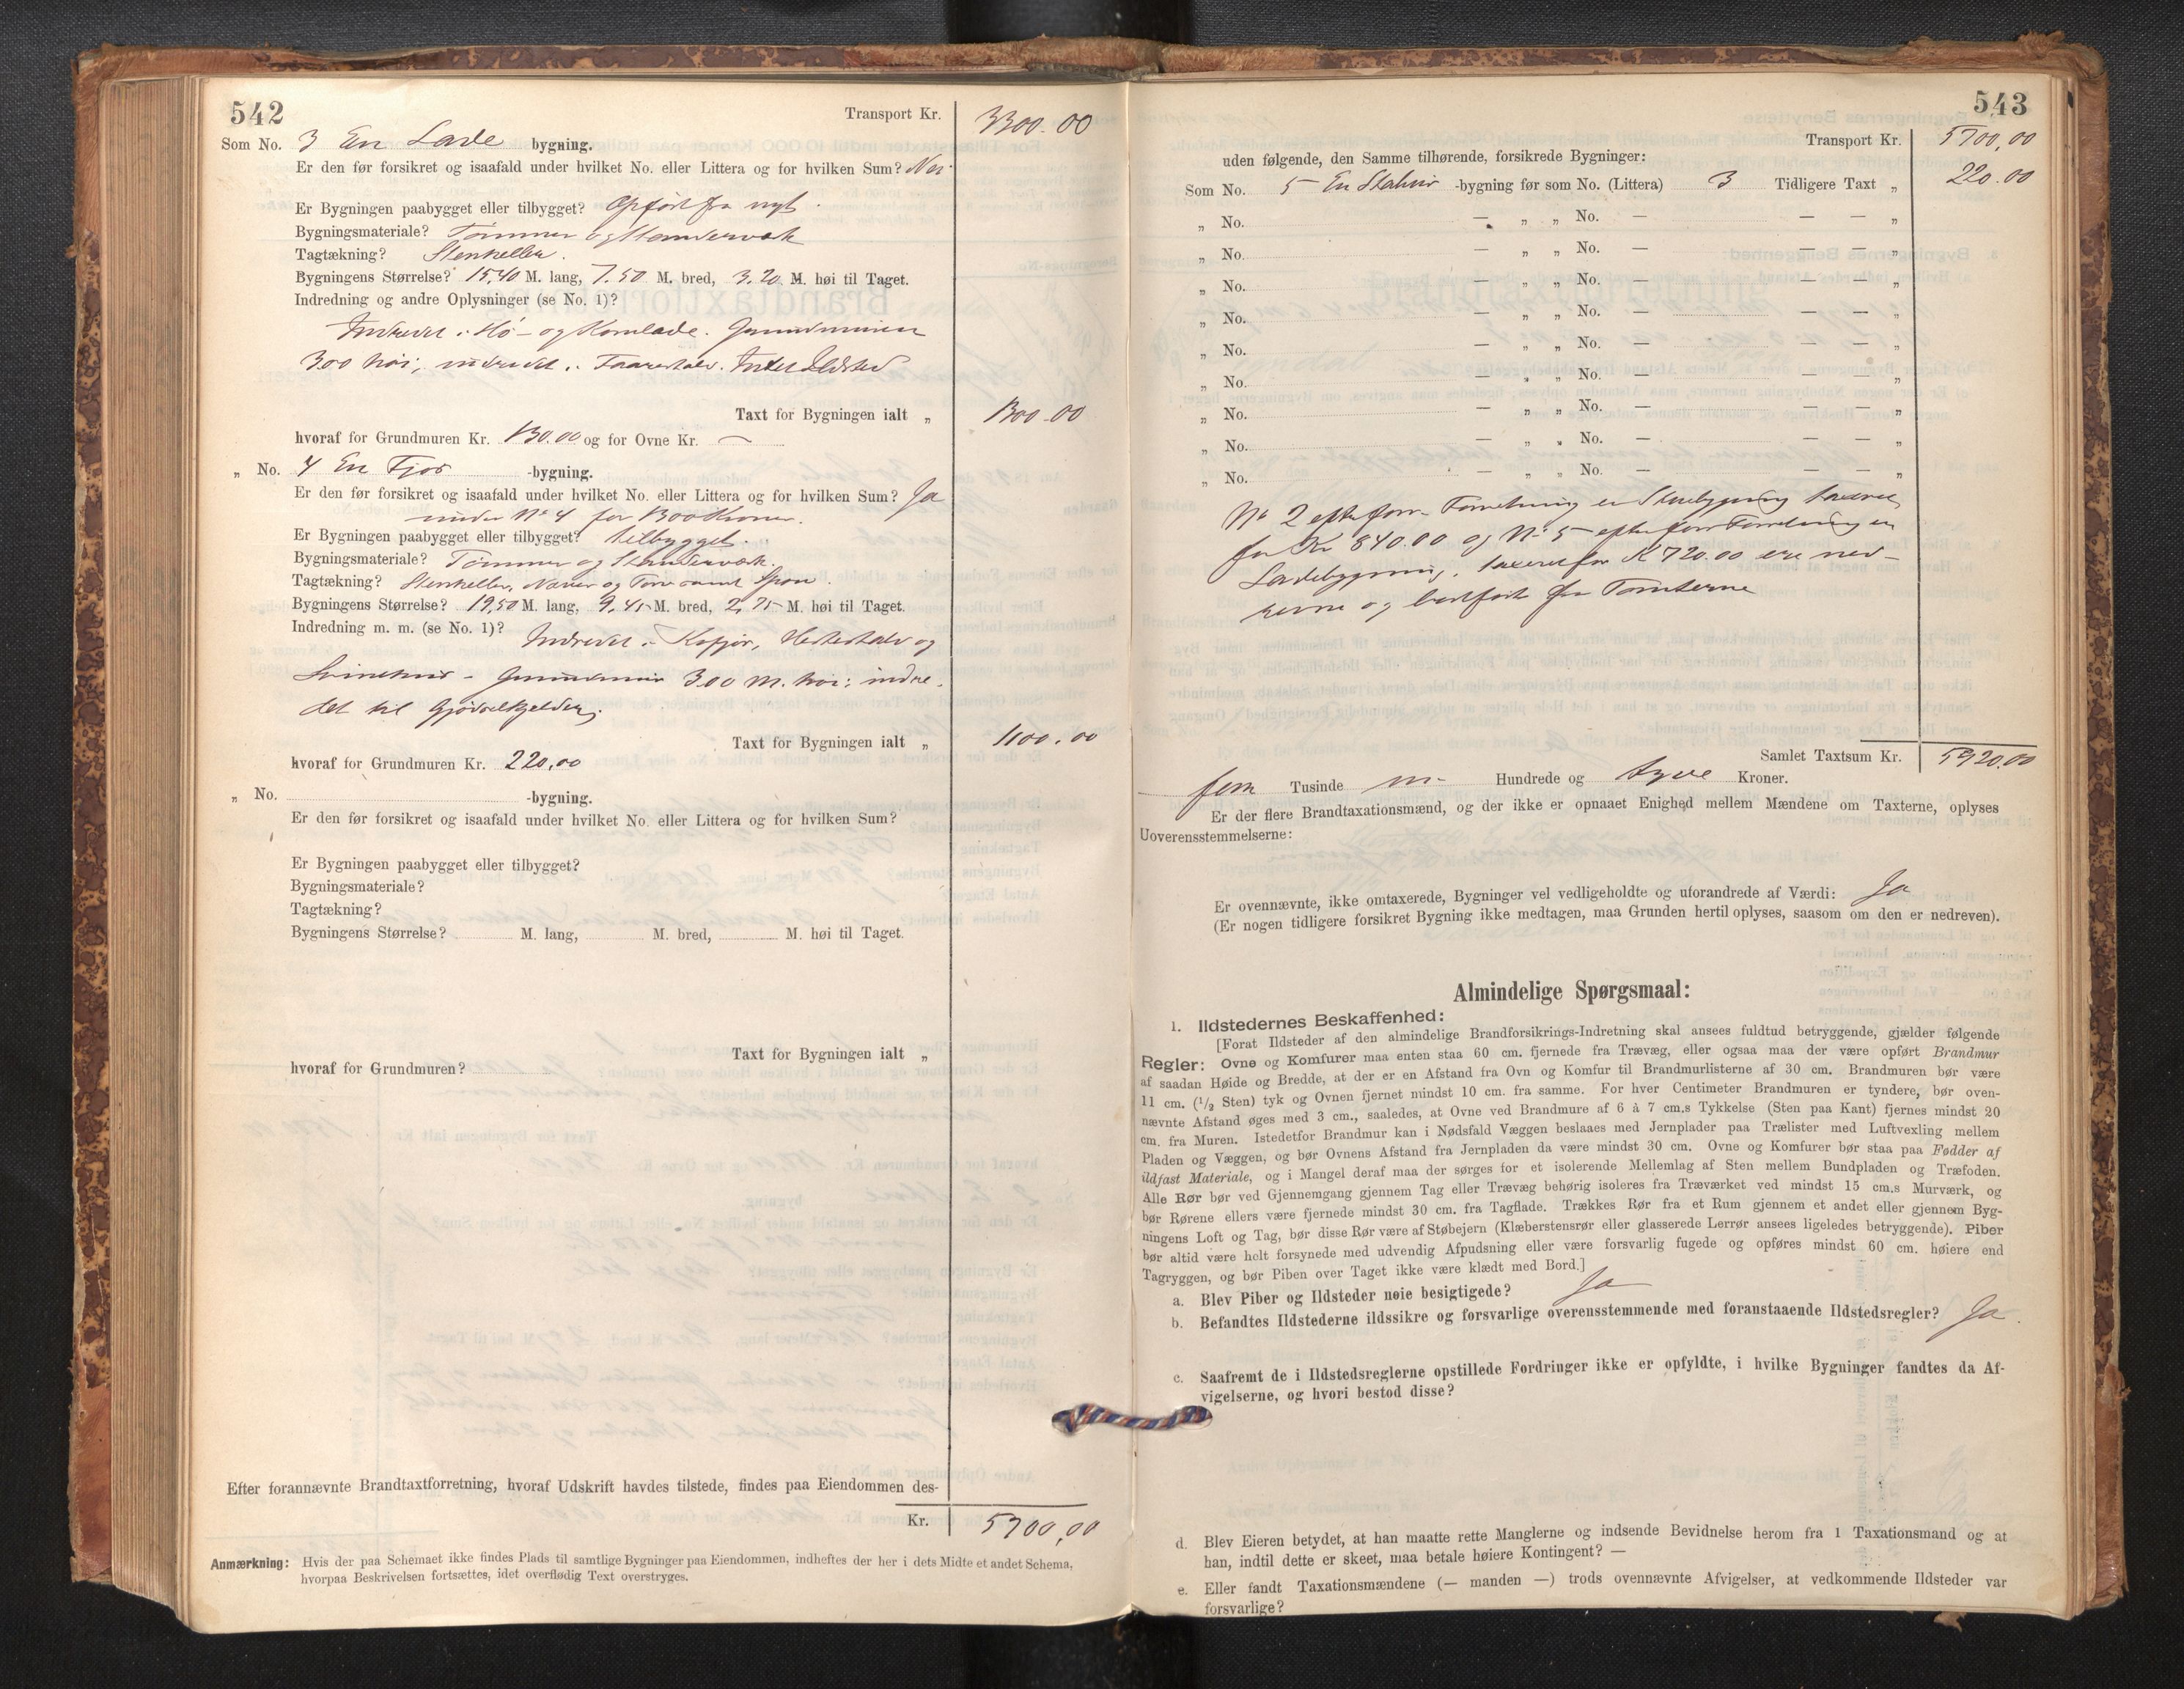 542
Transport Kr. 3300.00
Som No. 3 En Lade bygning.
Er den før forsikret og isaafald under hvilket No. eller Littera og for hvilken Sum? Nei
Er Bygningen paabygget eller tilbygget? Opført fra nyt.
Bygningsmateriale? Tømmer og Standerværk
Tagtækning? Stenheller.
Bygningens Størrelse? 15,40 M. lang, 7.50 M. bred, 3.20 M. høi til Taget.
Indredning og andre Oplysninger (se No. 1)?
Indredet i Hø- og Kornlade. Grundmuren
3.00 høi; indredet i Faarestald. Intet Ildsted
Taxt for Bygningen ialt „ 1300.00
hvoraf for Grundmuren Kr. 130.00 og for Ovne Kr. —
„ No. 4 En Fjøs -bygning.
Er den før forsikret og isaafald under hvilket No. eller Littera og for hvilken Sum? Ja
under No 4 for 1300 Kroner.
Er Bygningen paabygget eller tilbygget? tilbygget.
Bygningsmateriale? Tømmer og Standerværk.
Tagtækning? Stenheller, Næver og Torv samt Spon.
Bygningens Størrelse? 19,50 M. lang, 9,45 M. bred, 2,75 M. høi til Taget.
Indredning m. m. (se No. 1)? Indredet i Kofjøs, Hestestald og
Svinehus - Grundmur 3.00 M. høi; indre-
det til Gjødselkjelder.
Taxt for Bygningen ialt „ 1100.00
hvoraf for Grundmuren Kr. 220,00
„ No. -bygning.
Er den før forsikret og isaafald under hvilket No. eller Littera og for hvilken Sum?
Er Bygningen paabygget eller tilbygget?
Bygningsmateriale?
Tagtækning?
Bygningens Størrelse? M. lang, M. bred, M. høi til Taget.
Taxt for Bygningen ialt „
hvoraf for Grundmuren?
Efter forannævnte Brandtaxtforretning, hvoraf Udskrift havdes tilstede, findes paa Eiendommen des-
Kr. 5700,00
Anmærkning: Hvis der paa Schemaet ikke findes Plads til samtlige Bygninger paa Eiendommen, indheftes der her i dets Midte et andet Schema,
hvorpaa Beskrivelsen fortsættes, idet overflødig Text overstryges.
543
Transport Kr. 5700,00
uden følgende, den Samme tilhørende, forsikrede Bygninger:
Som No. 5 En Stabur -bygning før som No. (Littera) 3 Tidligere Taxt „ 220.00
„ No. — „ „ No. — — — „
„ No. — „ „ No. — — — „
„ No. — „ „ No. — — — „
„ No. — „ „ No. — — — „
„ No. — „ „ No. — — — „
„ No. — „ „ No. — — — „
„ No. — „ „ No. — — — „
„ No. — „ „ No. — — — „
„ No. — „ „ No. — — — „
No 2 efter forr. Forretning en Stuebygning taxeret
for Kr 840.00 og No 5 efter forr Forretning en
Ladebygning, taxeret for K 720.00 ere ned-
revne og bortført fra Tomterne
Samlet Taxtsum Kr. 5920.00
fem Tusinde ni Hundrede og tyve Kroner.
Er der flere Brandtaxationsmænd, og der ikke er opnaaet Enighed mellem Mændene om Taxterne, oplyses
Uoverensstemmelserne:
Er ovennævnte, ikke omtaxerede, Bygninger vel vedligeholdte og uforandrede af Værdi: Ja
(Er nogen tidligere forsikret Bygning ikke medtagen, maa Grunden hertil oplyses, saasom om den er nedreven).
Almindelige Spørgsmaal:
1. Ildstedernes Beskaffenhed:
[Forat Ildsteder af den almindelige Brandforsikrings-Indretning skal ansees fuldtud betryggende, gjælder følgende
Regler: Ovne og Komfurer maa enten staa 60 cm. fjernede fra Trævæg, eller ogsaa maa der være opført Brandmur
af saadan Høide og Bredde, at der er en Afstand fra Ovn og Komfur til Brandmurlisterne af 30 cm. Brandmuren bør være
11 cm. (1/2 Sten) tyk og Ovnen fjernet mindst 10 cm. fra samme. For hver Centimeter Brandmuren er tyndere, bør oven-
nævnte Afstand øges med 3 cm., saaledes, at Ovne ved Brandmure af 6 à 7 cm.s Tykkelse (Sten paa Kant) fjernes mindst 20
cm. fra Muren. Istedetfor Brandmur kan i Nødsfald Væggen beslaaes med Jernplader paa Trælister med Luftvexling mellem
Pladen og Væggen, og bør Ovnens Afstand fra Jernpladen da være mindst 30 cm. Ovne og Komfurer bør staa paa Fødder af
ildfast Materiale, og i Mangel deraf maa der sørges for et isolerende Mellemlag af Sten mellem Bundpladen og Træfoden.
Alle Rør bør ved Gjennemgang gjennem Tag eller Trævæg behørig isoleres fra Træværket ved mindst 15 cm.s Murværk, og
bør Rørene ellers være fjernede mindst 30 cm. fra Tagflade. Trækkes Rør fra et Rum gjennem et andet eller gjennem Byg-
ningens Loft og Tag, bør disse Rør være af Støbejern (Klæberstensrør eller glasserede Lerrør ansees ligeledes betryggende). Piber
bør altid være helt forsynede med udvendig Afpudsning eller være forsvarlig fugede og opføres mindst 60 cm. høiere end
Tagryggen, og bør Piben over Taget ikke være klædt med Bord.]
a. Blev Piber og Ildsteder nøie besigtigede? Ja
b. Befandtes Ildstederne ildssikre og forsvarlige overensstemmende med foranstaaende Ildstedsregler? Ja.
c. Saafremt de i Ildstedsreglerne opstillede Fordringer ikke er opfyldte, i hvilke Bygninger fandtes da Af-
vigelserne, og hvori bestod disse?
d. Blev Eieren betydet, at han maatte rette Manglerne og indsende Bevidnelse herom fra 1 Taxationsmand og at
han, indtil dette er skeet, maa betale høiere Kontingent? —
e. Eller fandt Taxationsmændene (— manden —) trods ovennævnte Afvigelser, at vedkommende Ildsteder var
forsvarlige?